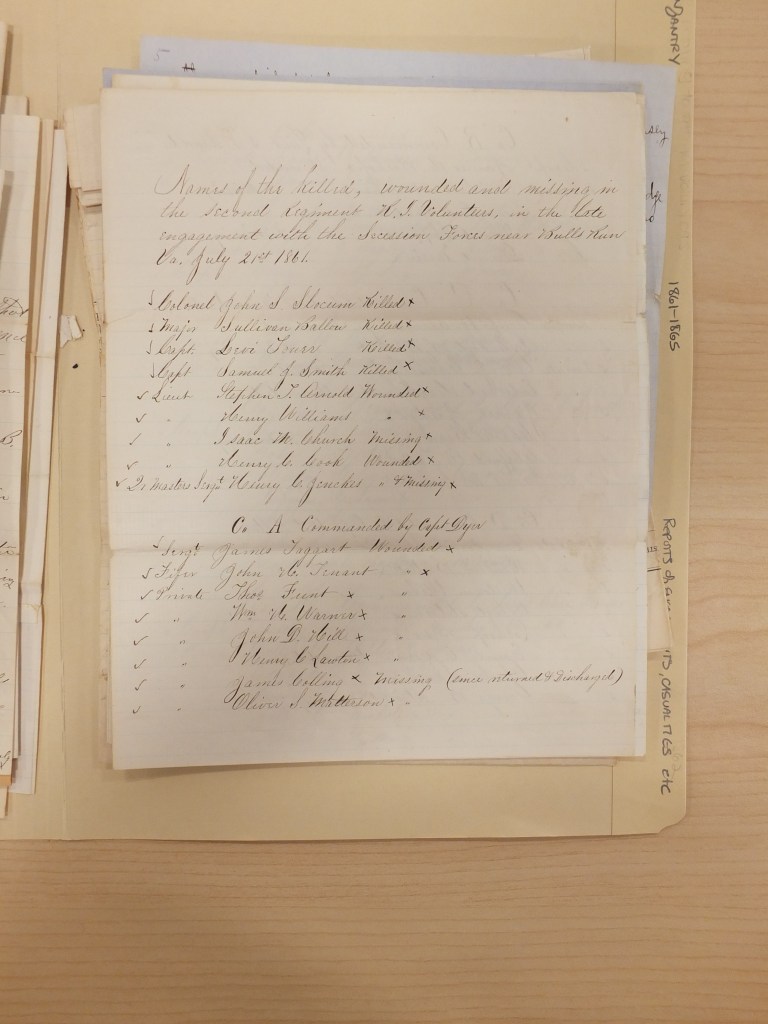 Names of the Killed, wounded and missing in
the second Regiment R.I. Volunteers, in the late
engagement with the Secession Forces near Bulls Run
Va. July 21st 1861.
Colonel John S. Slocum Killed x
Major Sullivan Ballou Killed x
Capt. Levi Tower Killed x
Capt Samuel J. Smith Killed x
Lieut Stephen T. Arnold Wounded x
" Henry Williams " x
" Isaac M. Church Missing x
" Henry C. Cook Wounded x
Qr. Masters Sergt Henry C. Jenckes " & Missing x
Co A Commanded by Capt Dyer
Sergt James Taggart Wounded x
Fifer John H. Tenant " x
Private Thos x "
" Wm H. Warner x "
" John D. Hill x "
" Henry C Lawton x "
" James Colling x Missing (since returned & Discharged)
" Oliver S. x "
1861-1865
REPORTS
, CASUALTIES etc